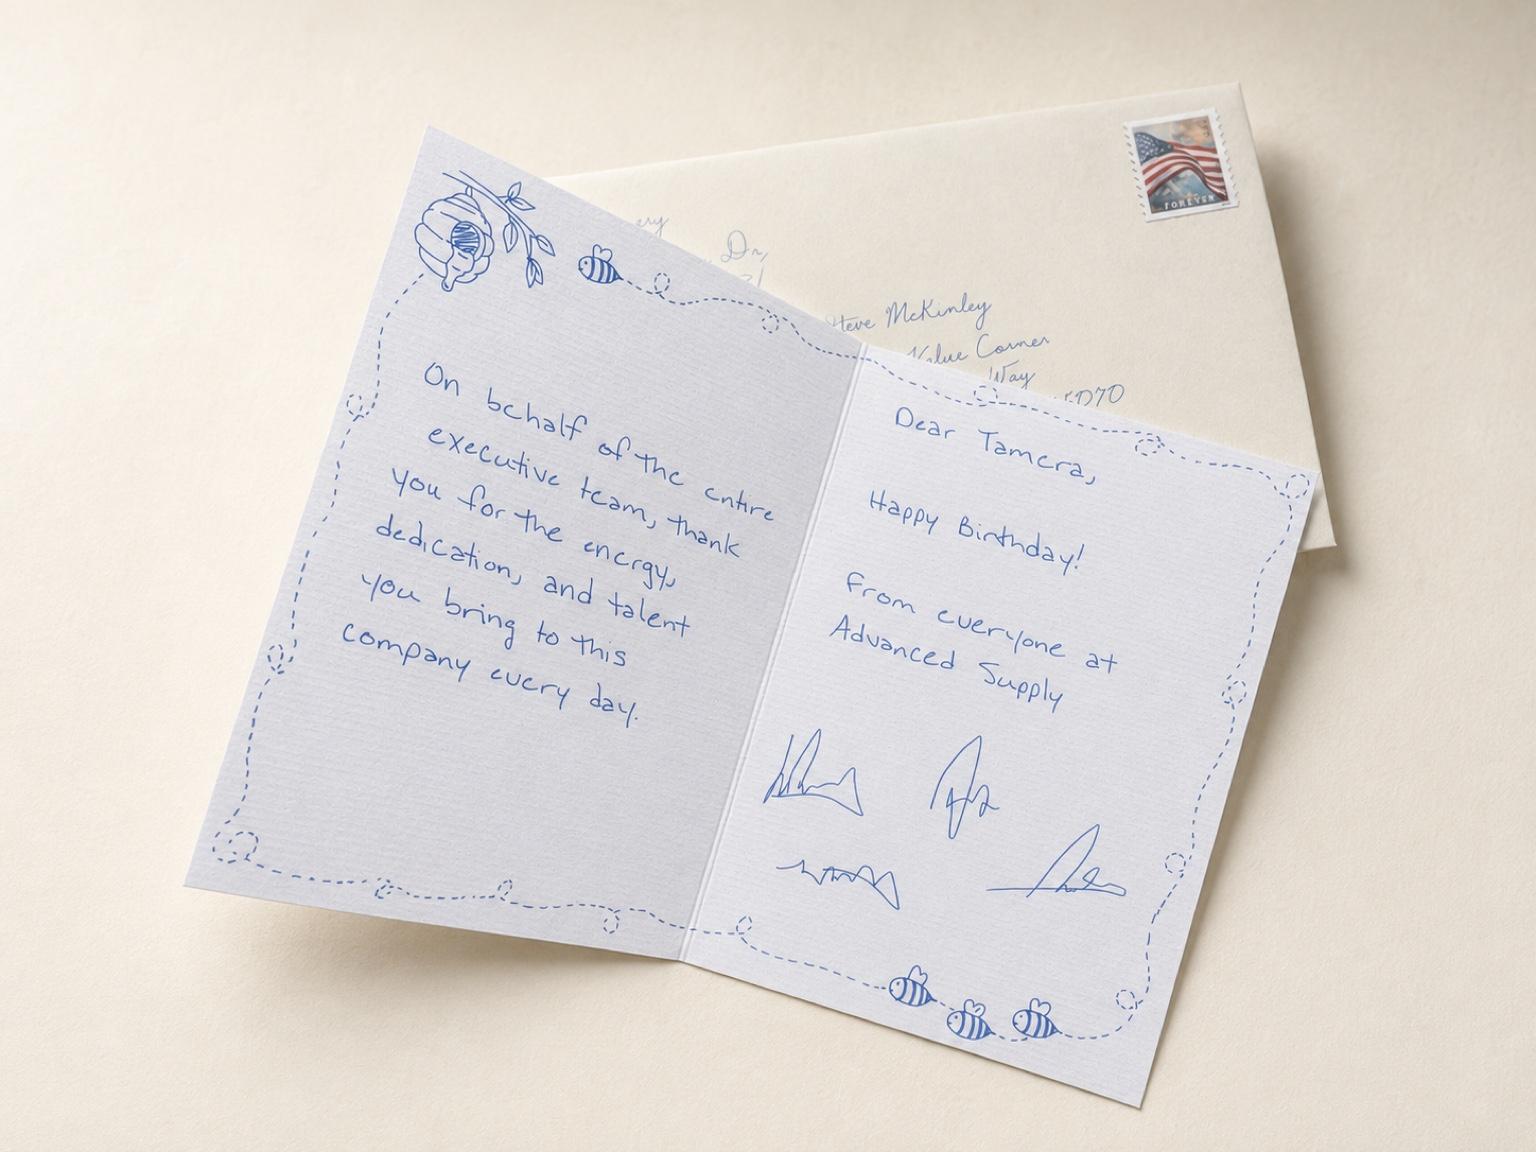 On behalf of the entire
executive team, thank
you for the energy,
dedication, and talent
you bring to this
company every day.
Dear Tamera,
Happy Birthday!
From everyone at
Advanced Supply
Dr,
McKinley
Corner
Way
FOREVER